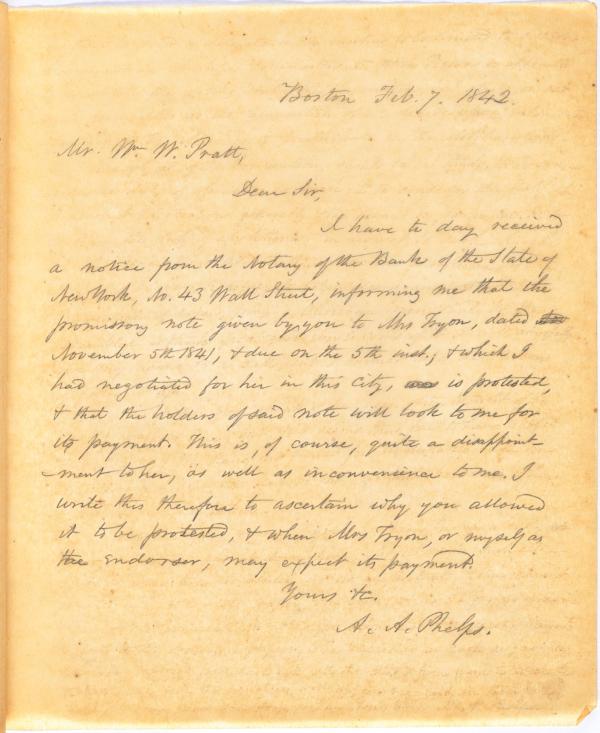 Boston Feb. 7. 1842.
Mr. Wm. W. Pratt,
Dear Sir,
I have to day received
a notice from the Notary of the Bank of the State of
New York, No. 43 Wall Street, informing me that the
promissory note given by you to Mrs Tryon, dated
November 5th 1841, & due on the 5th inst., & which I
had negotiated for her in this city, is protested,
& that the holders of said note will look to me for
its payment. This is, of course, quite a disappoint-
ment to her, as well as inconvenience to me. I
write this therefore to ascertain why you allowed
it to be protested, & when Mrs Tryon, or myself as
the Endorser, may expect its payment.
Yours &c.
A. A. Phelps.